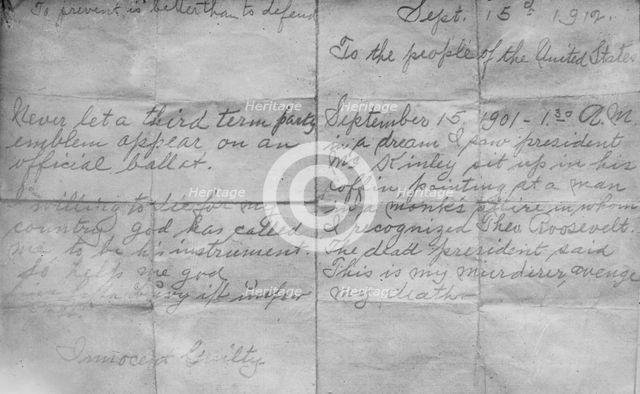 To prevent is better than to defend
Never let a third term party
emblem appear on an
official ballot.
willing to die for my
country god has called
me to be his instrument.
So help me god
Innocent Guilty.
Sept. 15th 1912.
To the people of the United States
September 15, 1901 - 1:30 A.M.
in a dream I saw president
Mc Kinley sit up in his
coffin pointing at a man
in a monk's attire in whom
I recognized Theo. Roosevelt.
The dead president said
This is my murderer, avenge
my death.
Heritage
Heritage
Heritage
Heritage
Heritage
Heritage
Images
Images
Images
Images
Images
Images
C